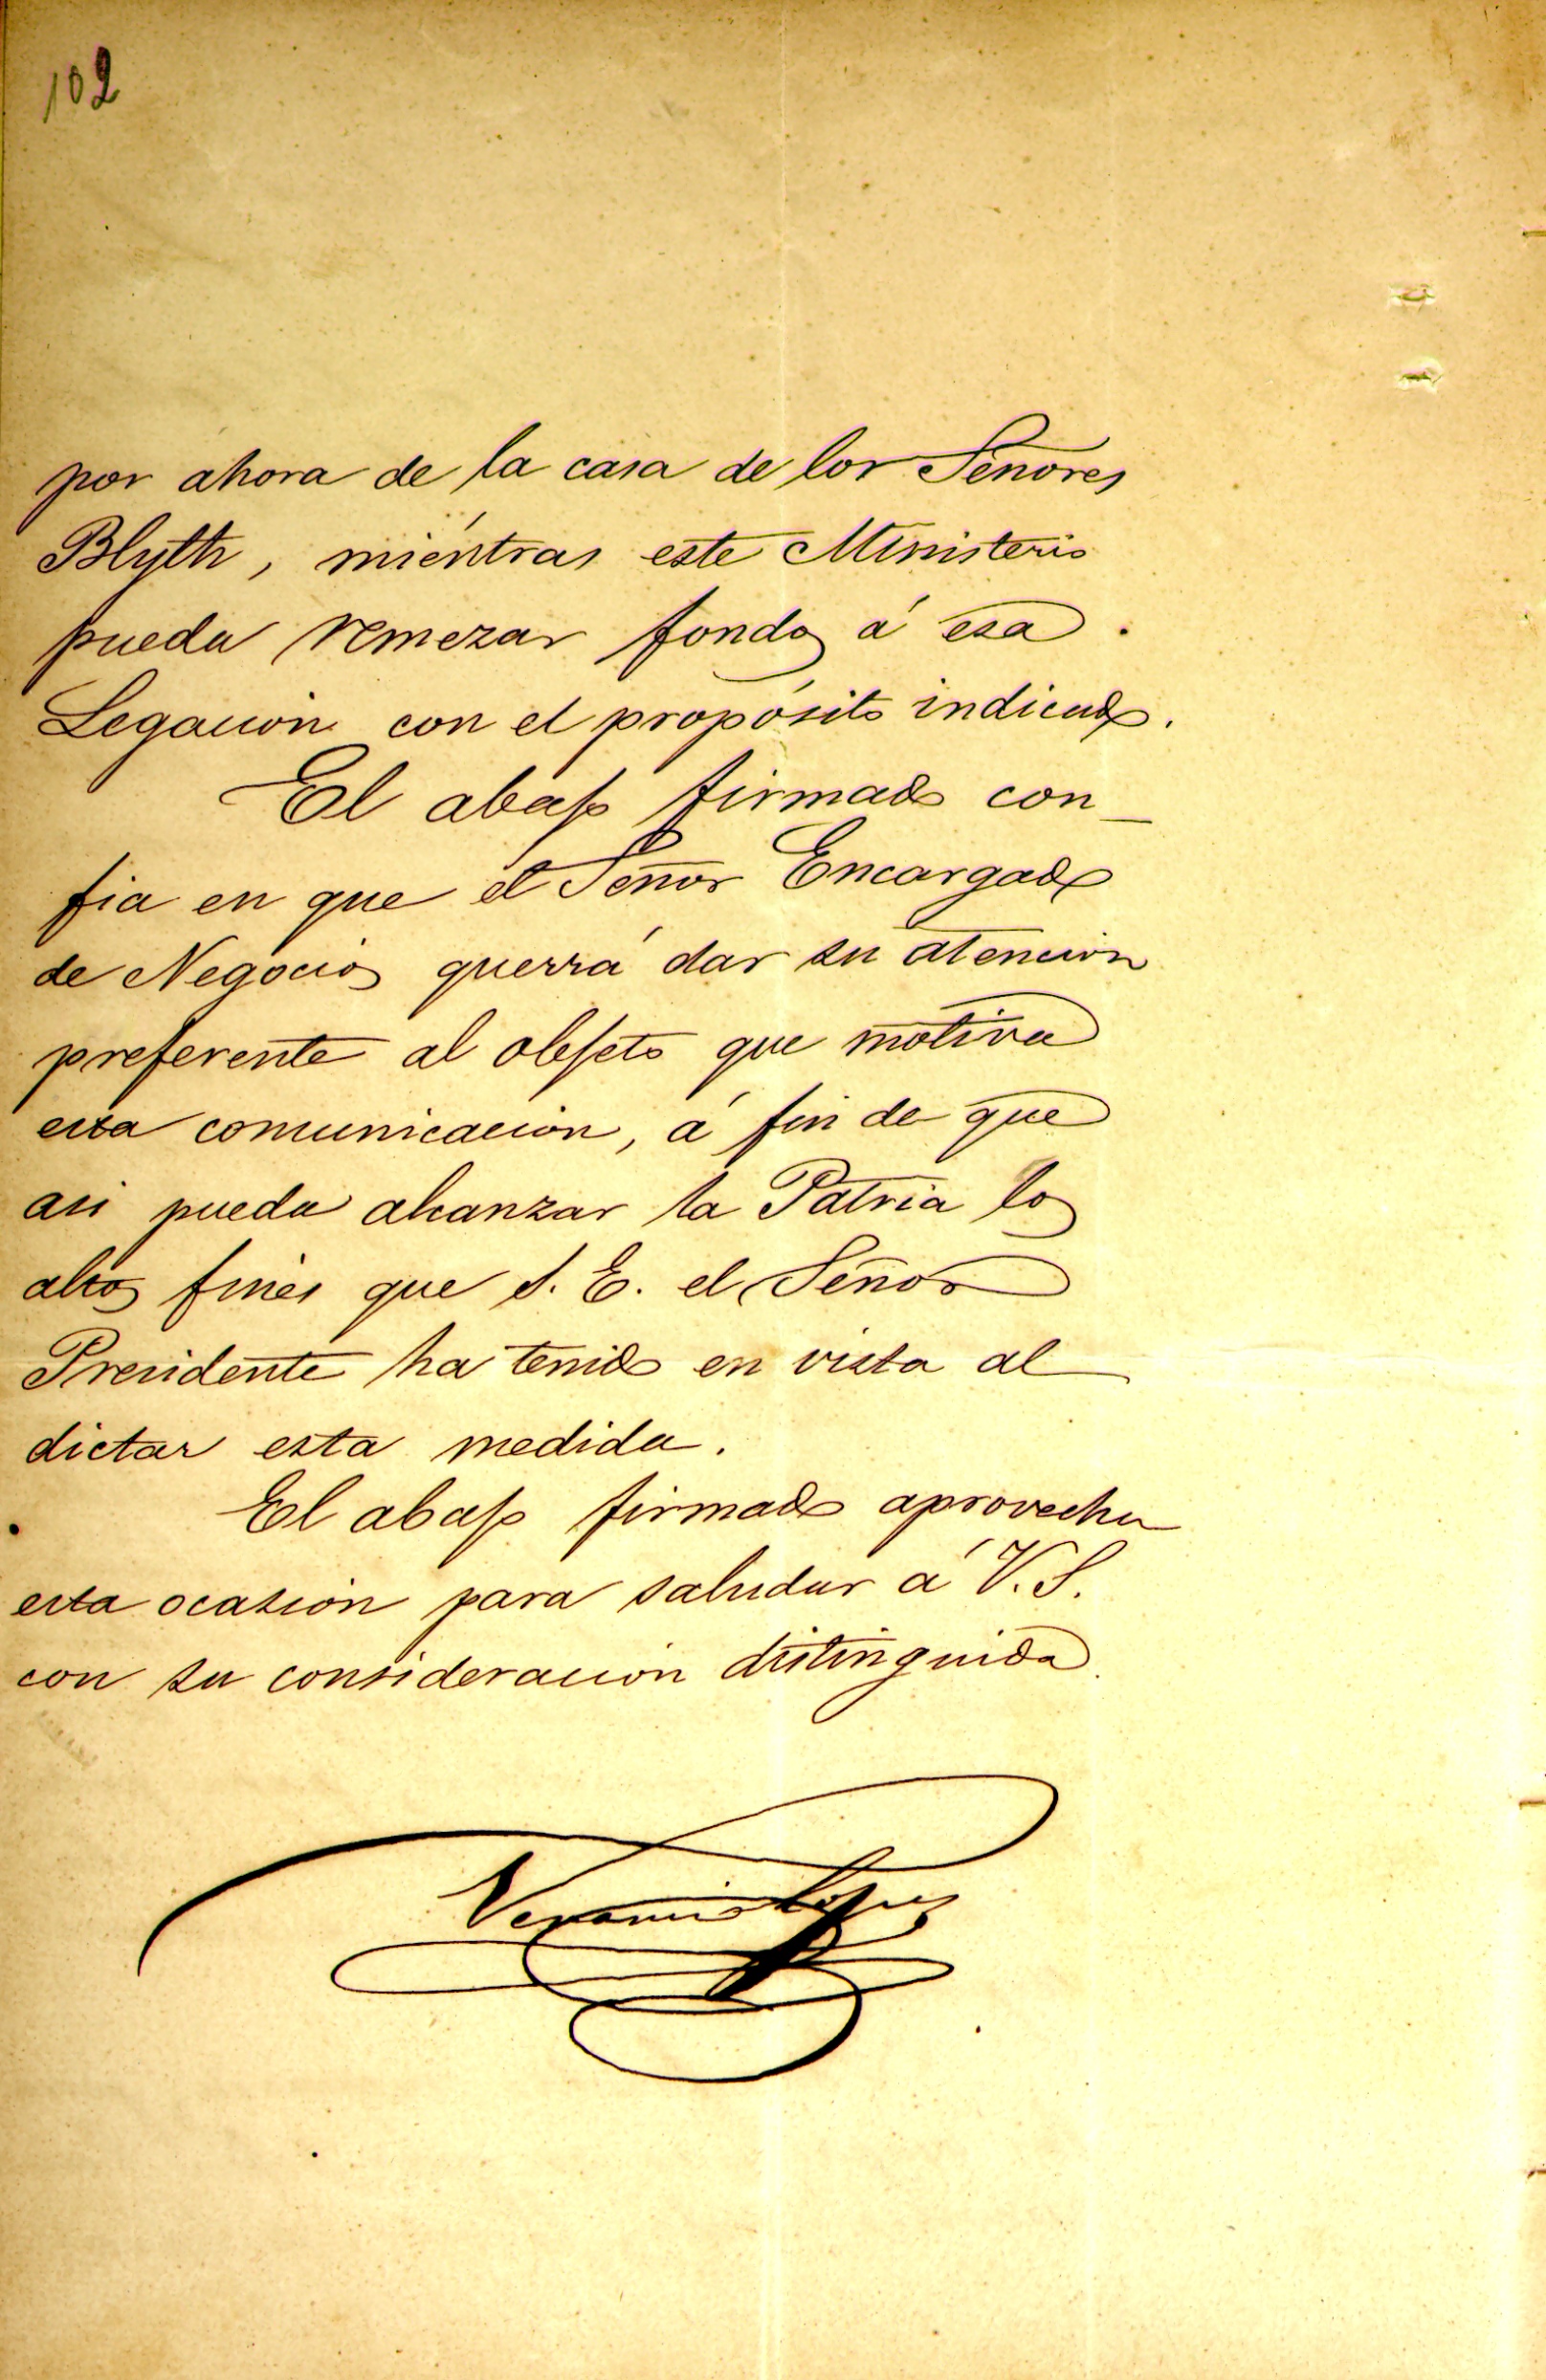 102
por ahora de la casa de los Señores
Blyth, miéntras este Ministerio
pueda remezar fondos á esa
Legacion con el propósito indicado.
El abajo firmado con_
fia en que el Señor Encargado
de Negocios querrá dar su atencion
preferente al objeto que motiva
esta comunicacion, á fin de que
asi pueda alcanzar la Patria los
altos fines que S. E. el Señor
Presidente ha tenido en vista al
dictar esta medida.
El abajo firmado aprovecha
esta ocasion para saludar á V. S.
con su consideracion distinguida.
Venancio López